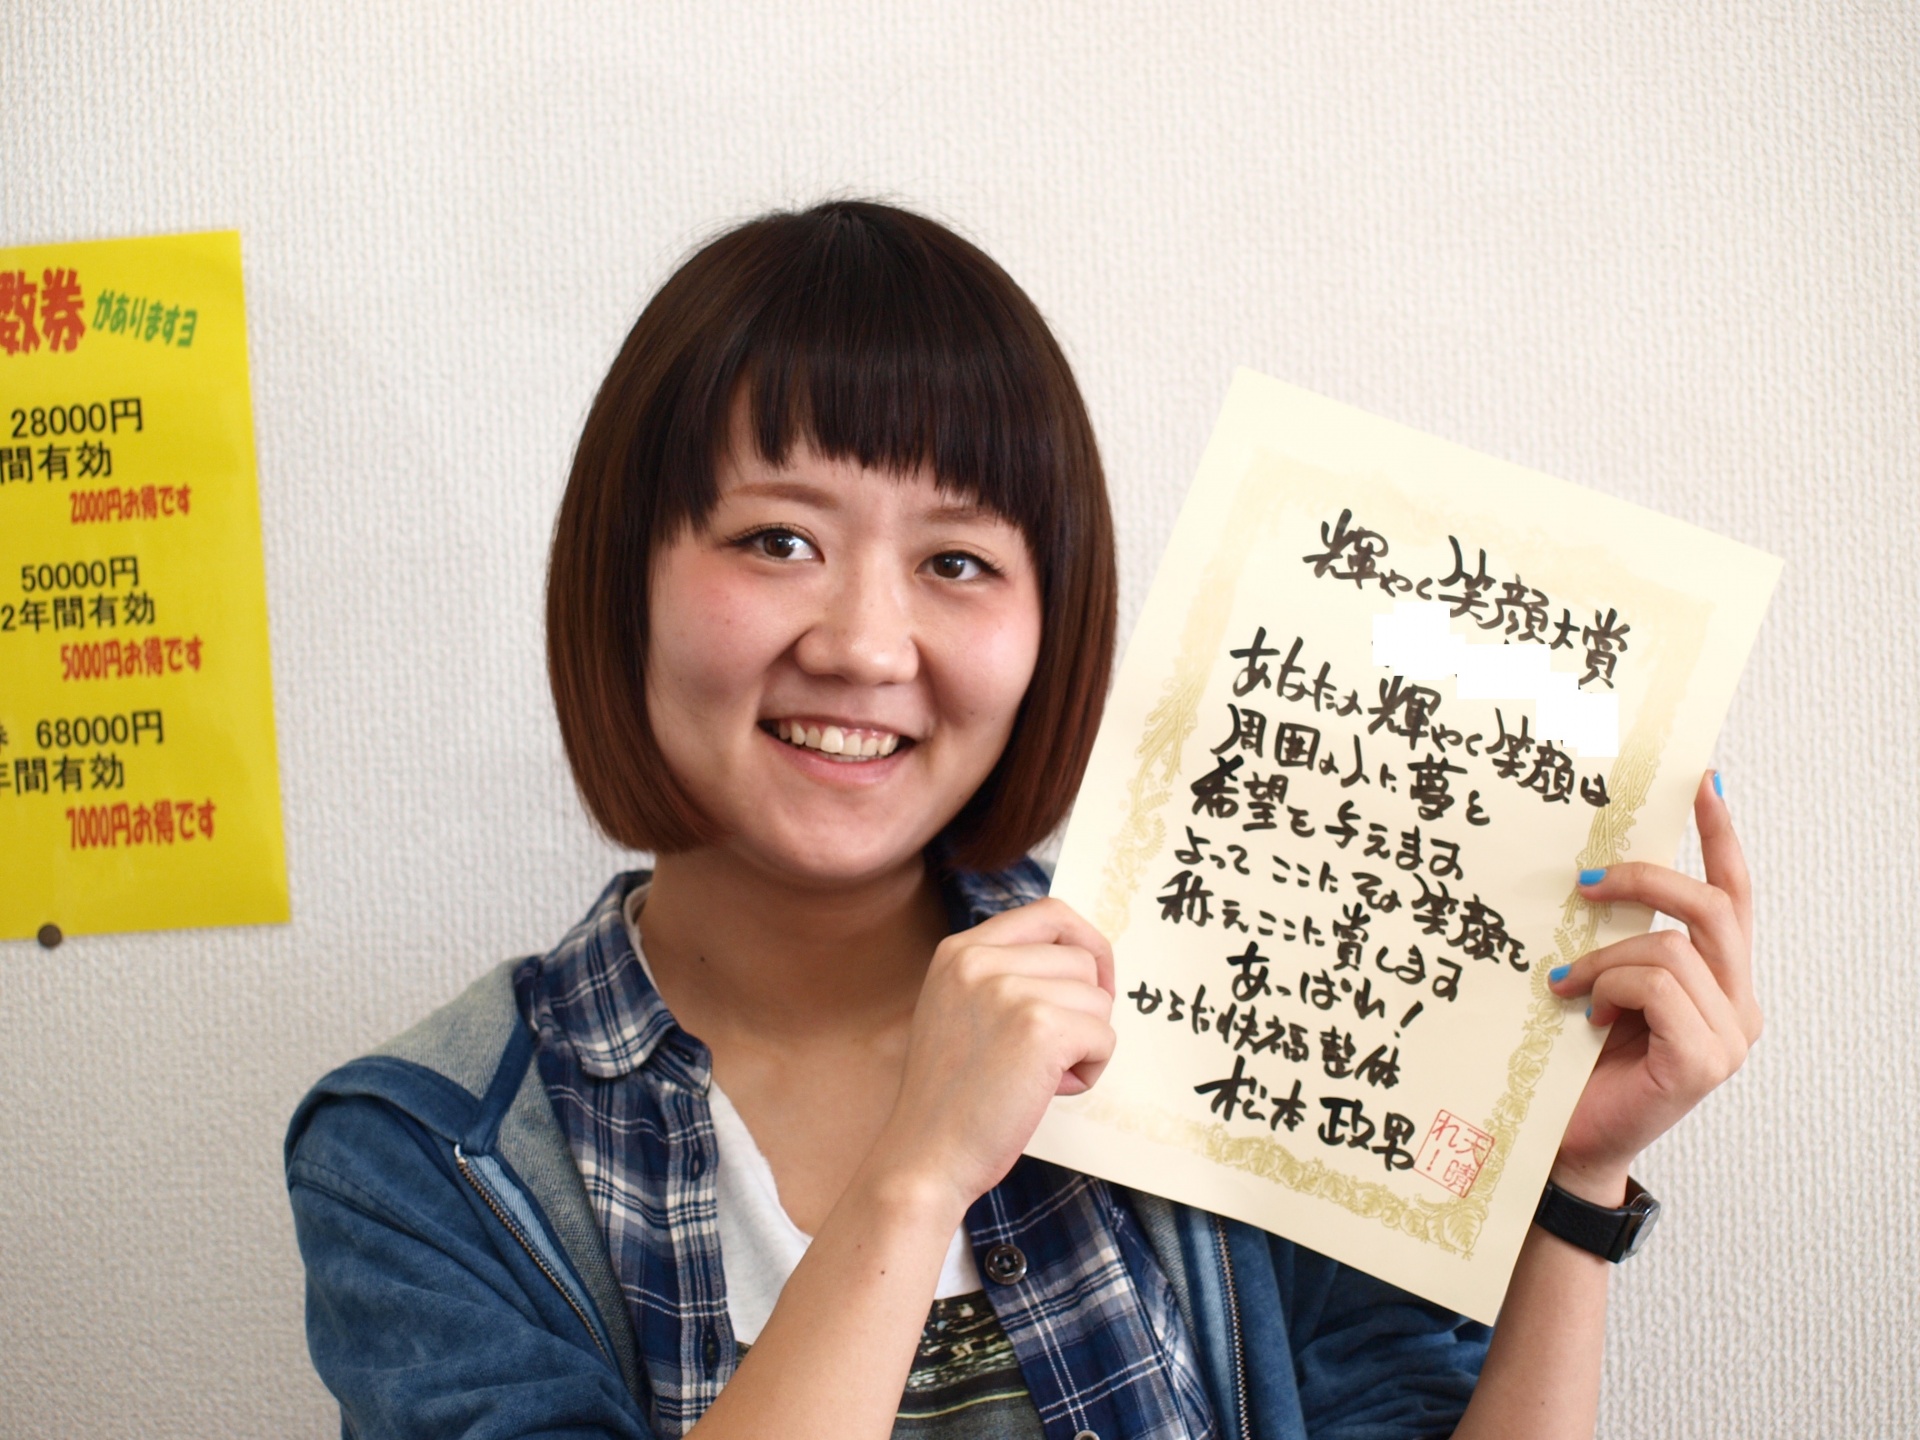 数券 がありますヨ
28000円
間有効
2000円お得です
50000円
2年間有効
5000円お得です
68000円
年間有効
7000円お得です
輝やく笑顔大賞
あなたの輝やく笑顔は
周囲の人に夢と
希望を与えます
よって ここに その笑顔を
称えここに賞します
あっぱれ!
からだ快福整体
松本政男
天晴れ!